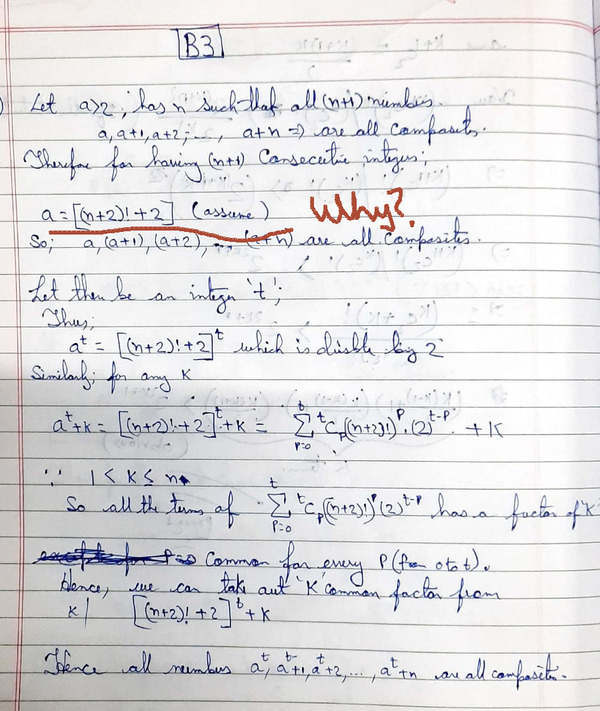 B3
Let a>2, has n such that all (n+1) numbers.
a, a+1, a+2, ..., a+n => are all composites.
Therefore for having (n+1) Consecutive integers;
a = [(n+2)! + 2] (assume) Why?
So; a, (a+1), (a+2), ... (a+n) are all composites.
Let then be an integer 't';
Thus;
a^t = [(n+2)! + 2]^t which is divisble by 2
Similarly; for any K
a^t + K = [(n+2)! + 2]^t + K = \sum_{P=0}^{t} ^tC_P ((n+2)!)^P · (2)^{t-P} + K
∵ 1 < K ≤ n.
So all the terms of \sum_{P=0}^{t} ^tC_P ((n+2)!)^P (2)^{t-P} has a factor of 'K'
Common for every P (from 0 to t).
Hence, we can take out 'K' common factor from
K | [(n+2)! + 2]^t + K
Hence all numbers a^t, a^t+1, a^t+2, ..., a^t+n are all composites.